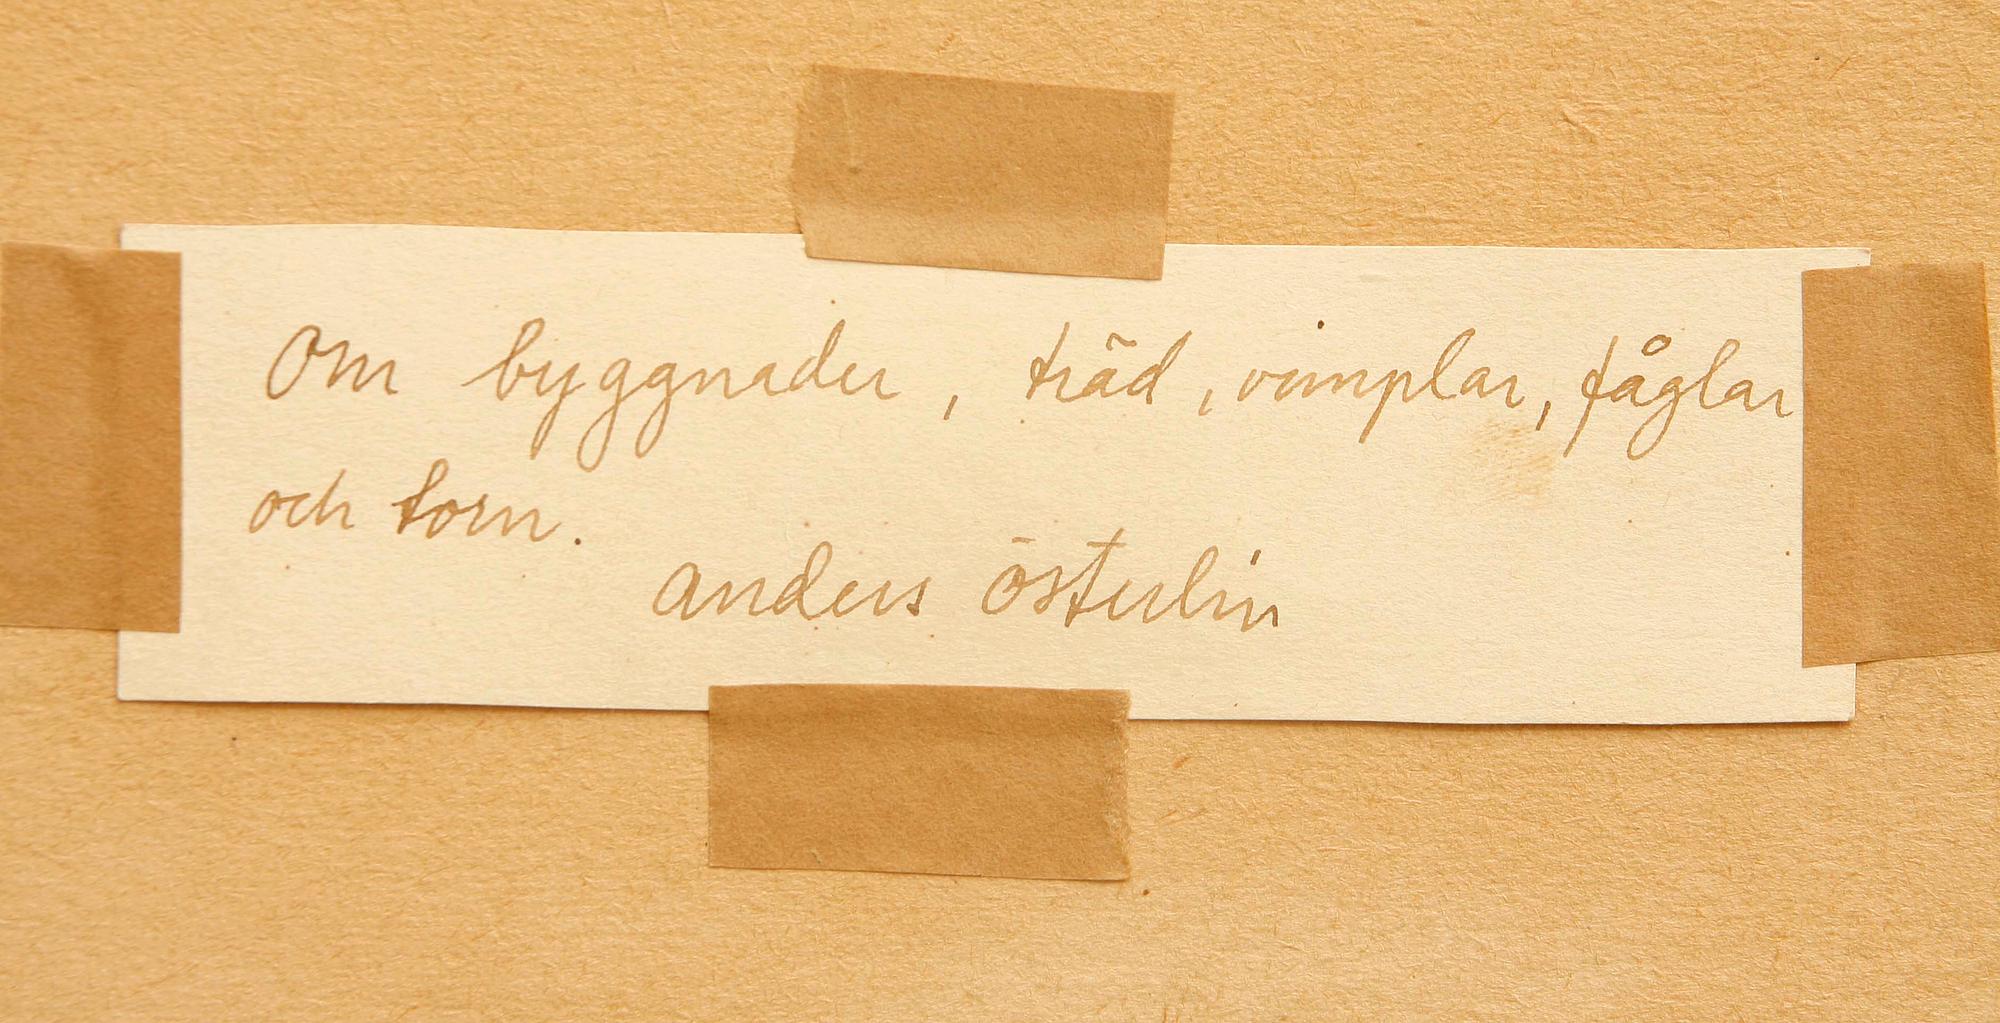 Om byggnader, träd, vimplar, fåglar
och torn.
anders österlin